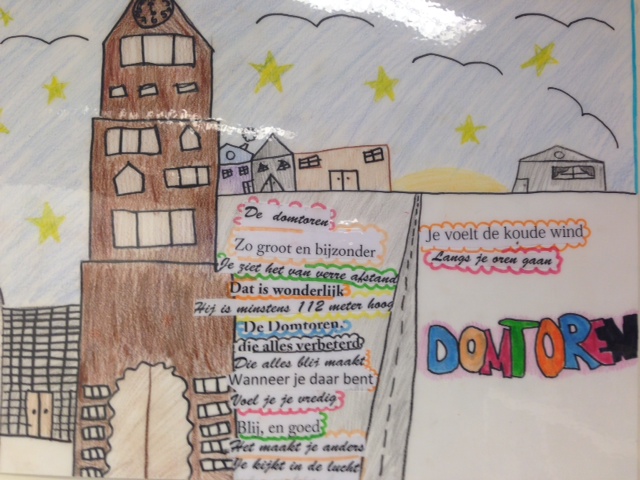 De domtoren
Zo groot en bijzonder
Je ziet het van verre afstand
Dat is wonderlijk
Hij is minstens 112 meter hoog
De Domtoren,
die alles verbeterd
Die alles blij maakt
Wanneer je daar bent
Voel je je vredig
Blij, en goed
Het maakt je anders
Je kijkt in de lucht
Je voelt de koude wind
Langs je oren gaan
DOMTOREN